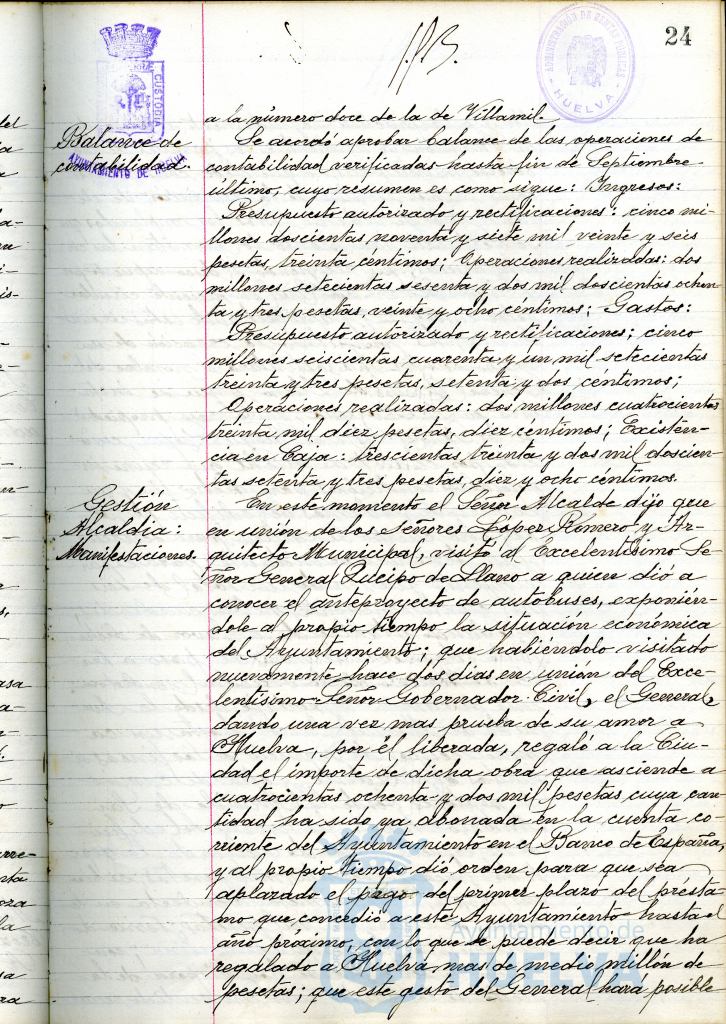 24
CUSTODIA
AYUNTAMIENTO DE HUELVA
ADMINISTRACIÓN DE RENTAS PÚBLICAS
HUELVA
a la número doce de la de Villamil.
Balance de
contabilidad.
Se acordó aprobar balance de las operaciones de
contabilidad verificadas hasta fin de Septiembre
último, cuyo resumen es como sigue: Ingresos:
Presupuesto autorizado y rectificaciones: cinco mi-
llones doscientas noventa y siete mil veinte y seis
pesetas, treinta céntimos; Operaciones realizadas: dos
millones setecientas sesenta y dos mil doscientas ochen-
ta y tres pesetas, veinte y ocho céntimos; Gastos:
Presupuesto autorizado y rectificaciones; cinco
millones seiscientas cuarenta y un mil setecientas
treinta y tres pesetas, setenta y dos céntimos;
Operaciones realizadas: dos millones cuatrocientas
treinta mil diez pesetas, diez céntimos; Existen-
cia en Caja: trescientas treinta y dos mil doscien-
tas setenta y tres pesetas, diez y ocho céntimos.
Gestión
Alcaldía:
Manifestaciones.
En este momento el Señor Alcalde dijo que
en unión de los Señores López Romero y Ar-
quitecto Municipal, visitó al Excelentísimo Se-
ñor General Queipo de Llano a quien dió a
conocer el anteproyecto de autobuses, exponién-
dole al propio tiempo la situación económica
del Ayuntamiento; que habiéndolo visitado
nuevamente hace dos días en unión del Exce-
lentísimo Señor Gobernador Civil, el General,
dando una vez mas prueba de su amor a
Huelva, por él liberada, regaló a la Ciu-
dad el importe de dicha obra que asciende a
cuatrocientas ochenta y dos mil pesetas cuya can-
tidad ha sido ya abonada en la cuenta co-
rriente del Ayuntamiento en el Banco de España,
y al propio tiempo dió orden para que sea
aplazado el pago del primer plazo del présta-
mo que concedió a este Ayuntamiento hasta el
año próximo, con lo que se puede decir que ha
regalado a Huelva mas de medio millón de
pesetas; que este gesto del General hará posible
Ayuntamiento de
HUELVA